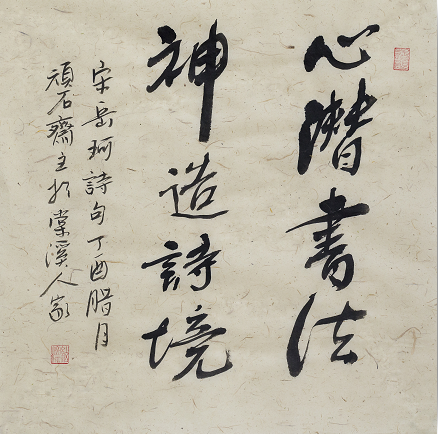 心潛書法
神造詩境
宋岳珂詩句丁酉腊月
頑石齋主於棠溪人家